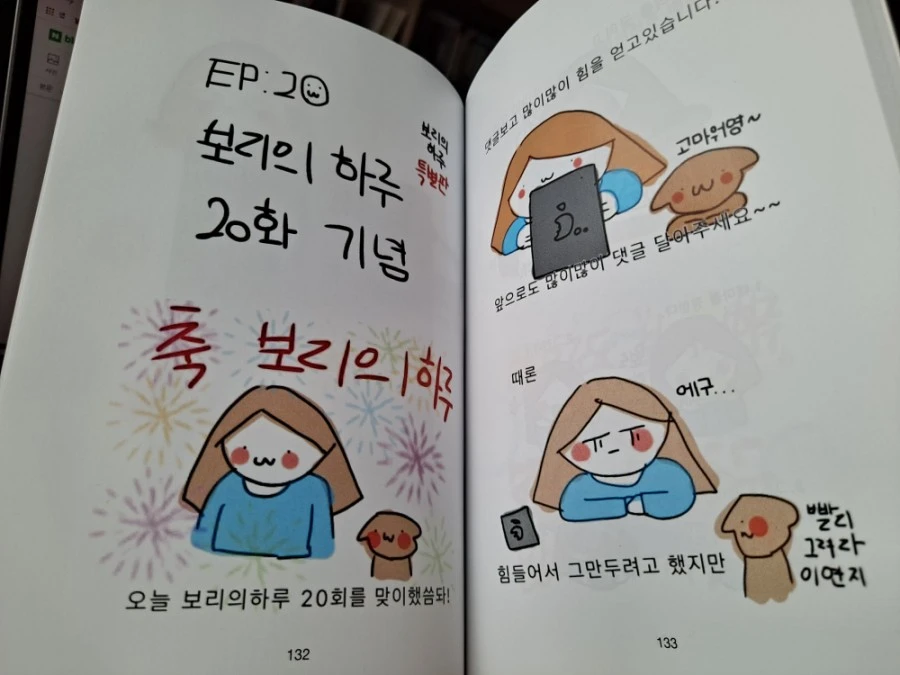 EP:20
보리의 하루
20화 기념
보리의
하루
특별판
축 보리의 하루
오늘 보리의하루 20회를 맞이했씀돠!
132
댓글보고 많이많이 힘을 얻고있습니다.
고마워영~
앞으로도 많이많이 댓글 달아주세요~~
때론
에구...
힘들어서 그만두려고 했지만
빨리
그려라
이연지
133